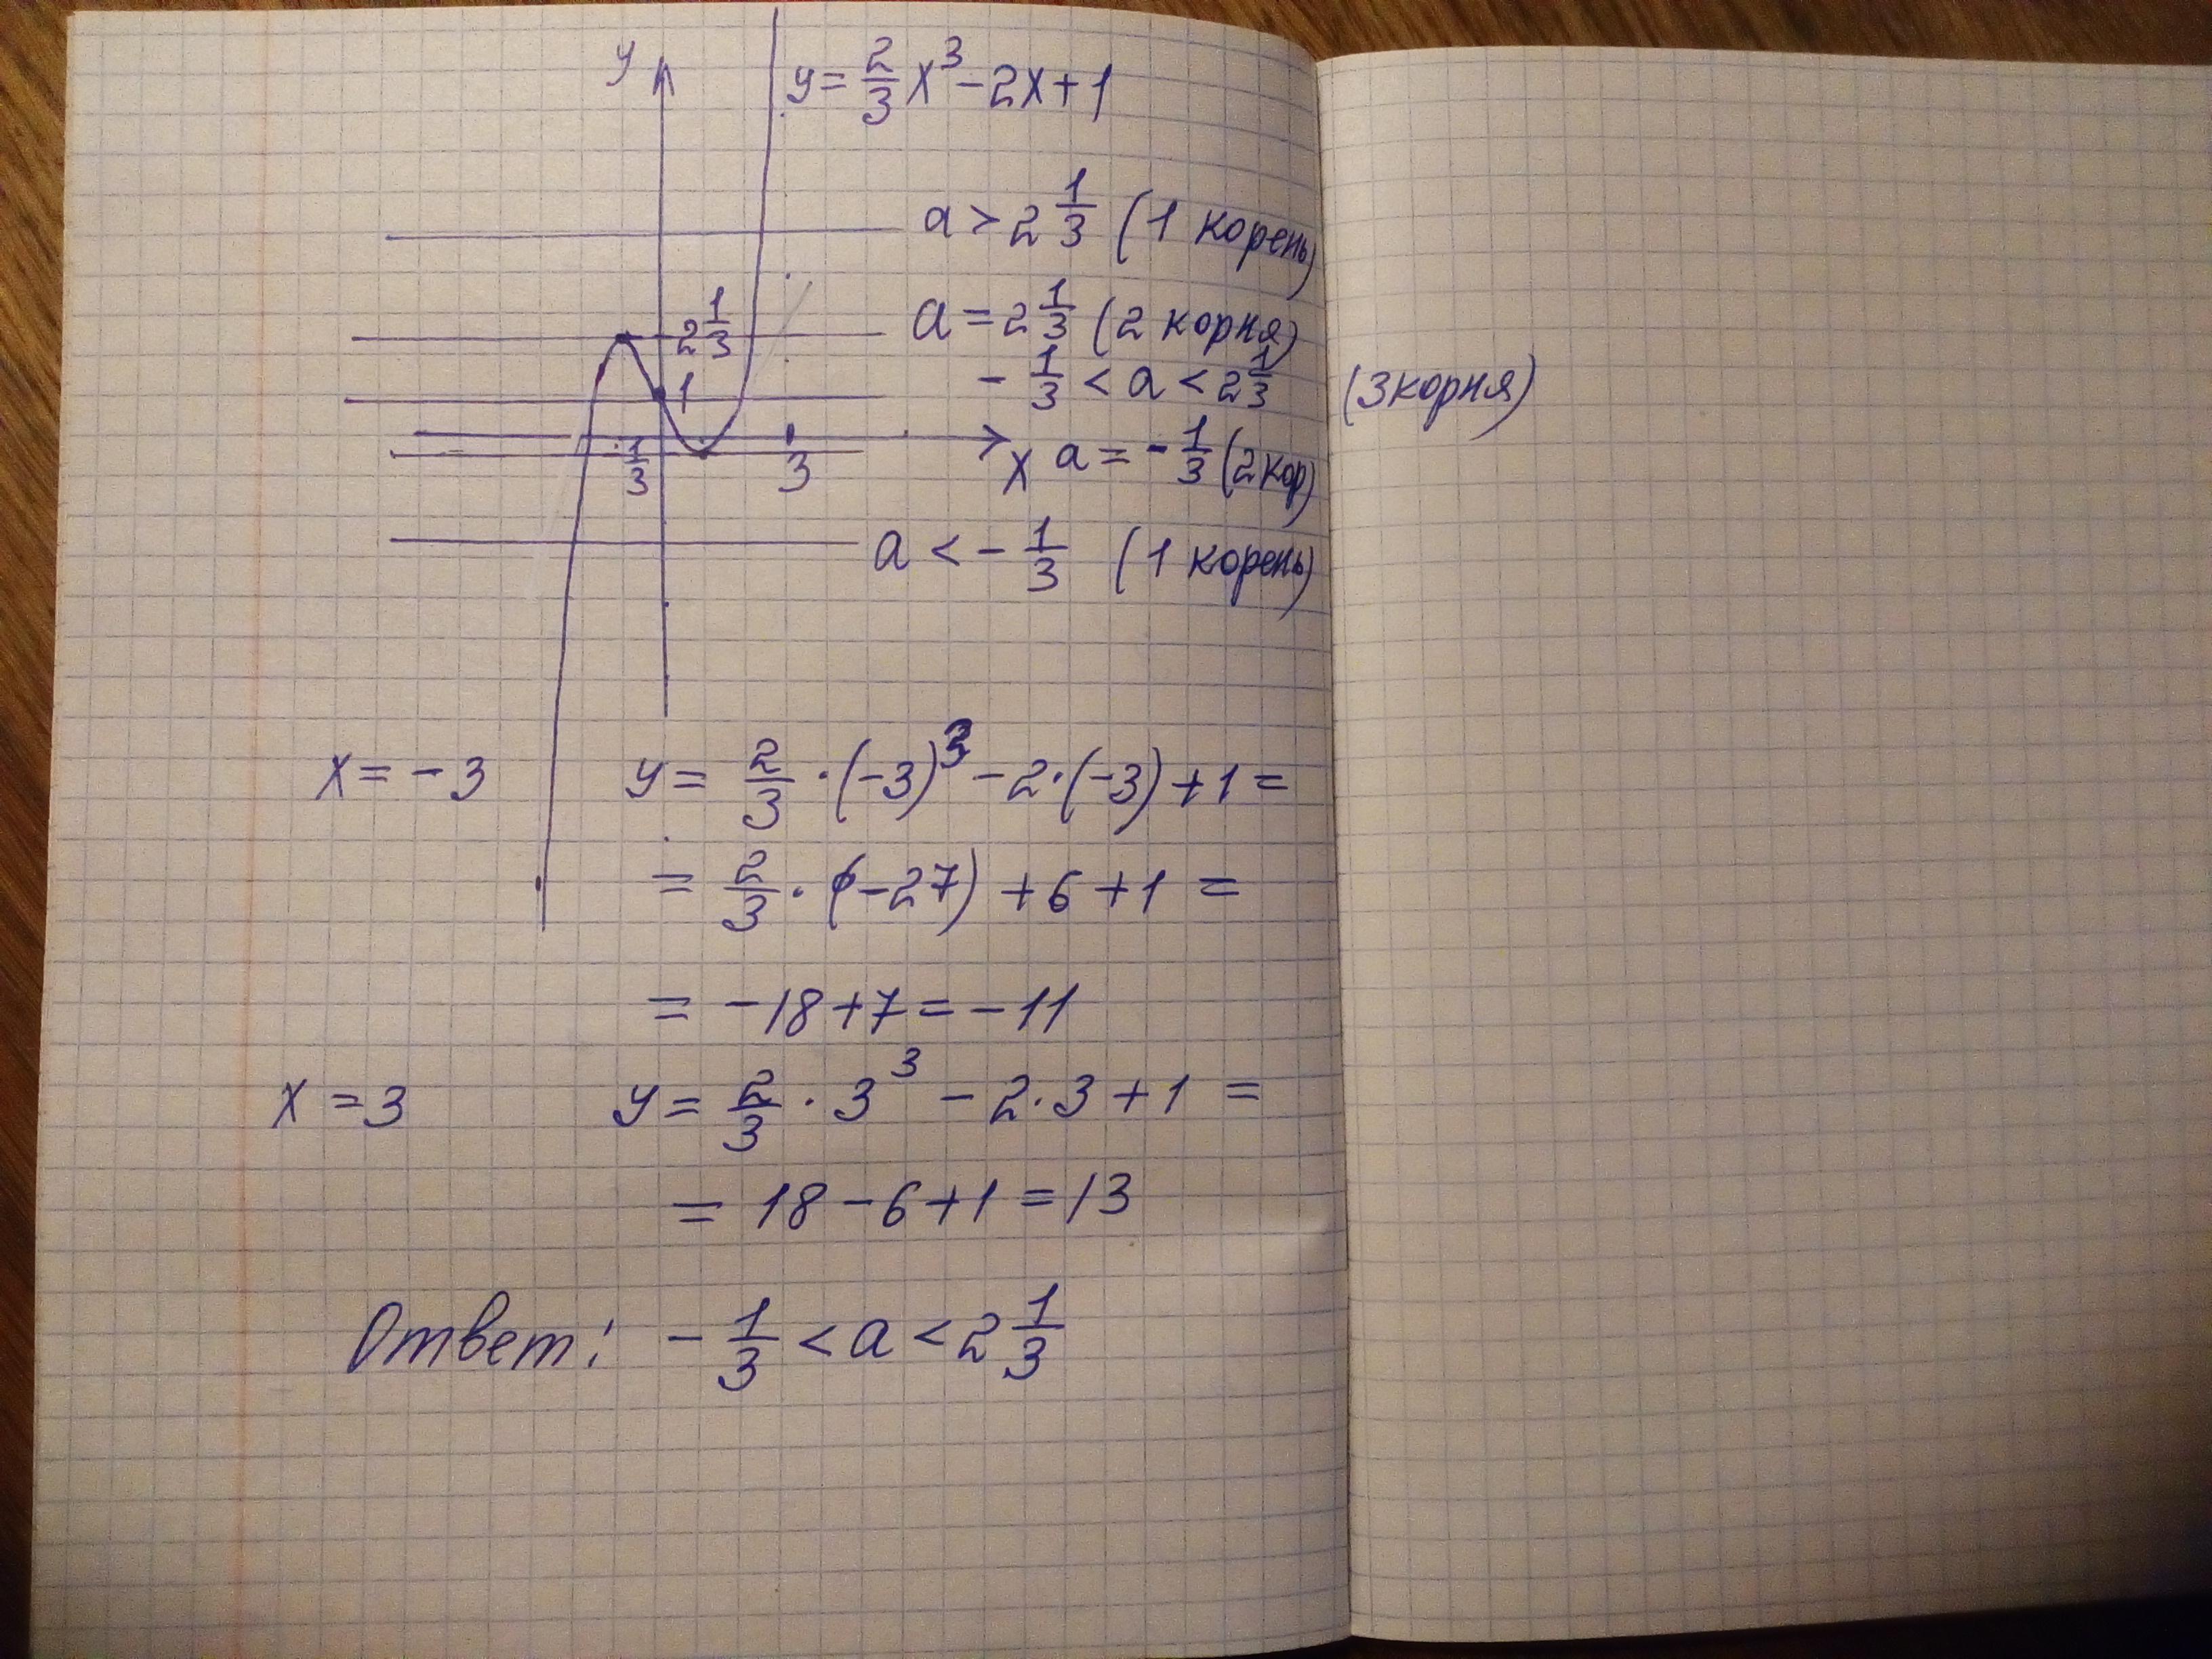 y
y = 2/3 x³ - 2x + 1
a > 2 1/3 (1 корень)
2 1/3
a = 2 1/3 (2 корня)
1
- 1/3 < a < 2 1/3 (3 корня)
- 1/3
3
x
a = - 1/3 (2 кор)
a < - 1/3 (1 корень)
x = - 3 y = 2/3 · (-3)³ - 2 · (-3) + 1 =
= 2/3 · (-27) + 6 + 1 =
= -18 + 7 = -11
x = 3 y = 2/3 · 3³ - 2 · 3 + 1 =
= 18 - 6 + 1 = 13
Ответ: - 1/3 < a < 2 1/3